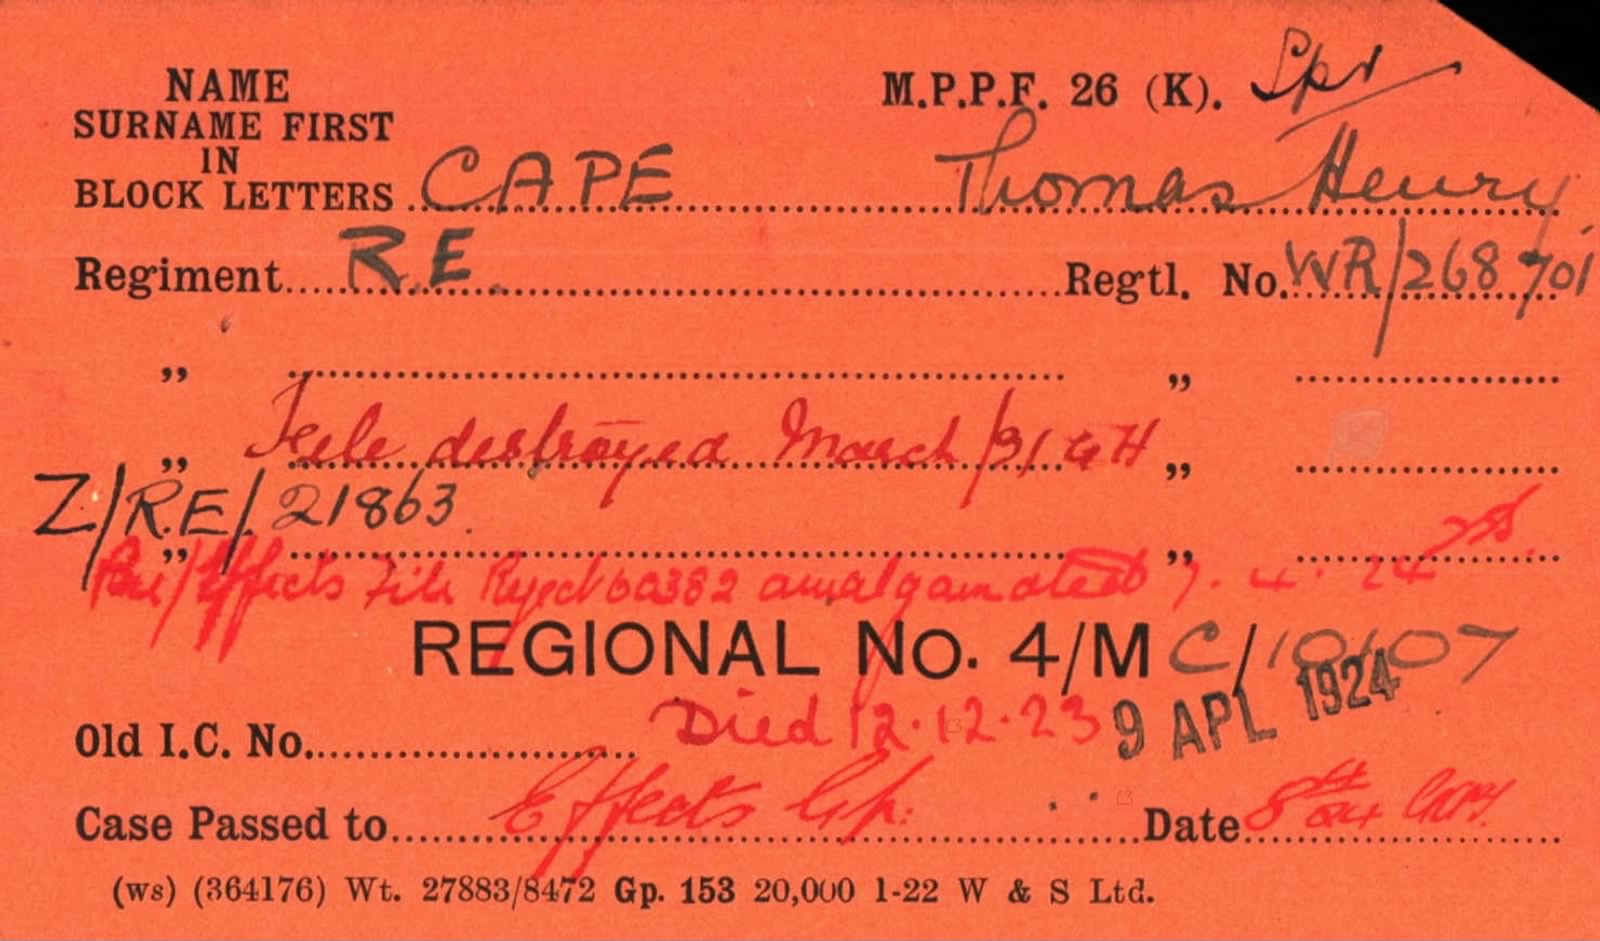 NAME
SURNAME FIRST
IN
BLOCK LETTERS CAPE Thomas Henry
M.P.P.F. 26 (K). Spr
Regiment R.E. Regtl. No. WR/268701
„ „
„ File destroyed March/31 GH „
Z/R.E/.21863.
„ „
/Effects File Reject 60382 amalgamated 7.4.24
REGIONAL No. 4/M C/10107
Died 12.12.23 9 APL 1924
Old I.C. No.
Case Passed to Effects Gp. Date
(ws) (364176) Wt. 27883/8472 Gp. 153 20,000 1-22 W & S Ltd.